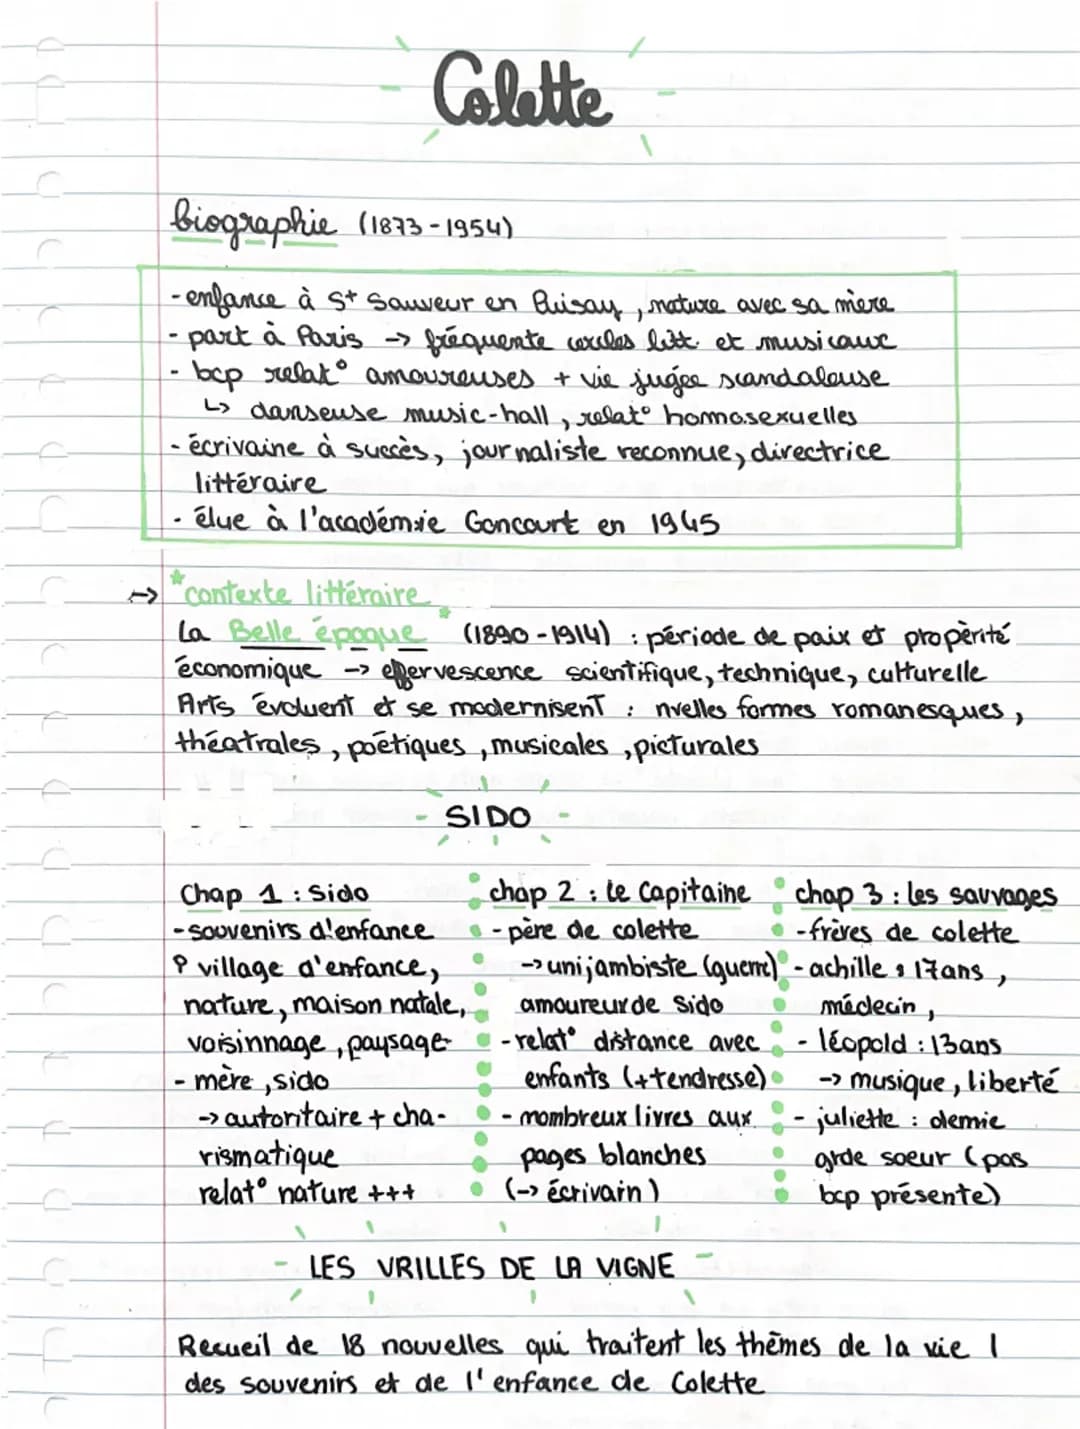 Colette
biographie (1873-1954)
- enfance à St Sauveur en Puisay, nature avec sa mère
- part à Paris -> fréquente cercles litt. et musicaux
- bcp relat° amoureuses + vie jugée scandaleuse
↳ danseuse music-hall, relat° homosexuelles
- écrivaine à succès, journaliste reconnue, directrice
littéraire
- élue à l'académie Goncourt en 1945
→ *contexte littéraire*
La Belle époque (1890-1914) : période de paix et propèrité
économique -> effervescence scientifique, technique, culturelle
Arts évoluent et se modernisent : nvelles formes romanesques,
théatrales, poétiques, musicales, picturales
- SIDO -
Chap 1 : Sido
- souvenirs d'enfance
village d'enfance,
nature, maison natale,
voisinnage, paysage
- mère, sido
-> autoritaire + cha-
rismatique
relat° nature +++
chap 2 : le Capitaine
- père de colette
-> unijambiste (guerre)
amoureux de Sido
- relat° distance avec
enfants (+tendresse)
- nombreux livres aux
pages blanches
(-> écrivain)
chap 3 : les sauvages
- frères de colette
- achille : 17ans,
médecin,
- léopold : 13ans
-> musique, liberté
- juliette : demie
grde soeur (pas
bcp présente)
- LES VRILLES DE LA VIGNE -
Recueil de 18 nouvelles qui traitent les thèmes de la vie |
des souvenirs et de l'enfance de Colette